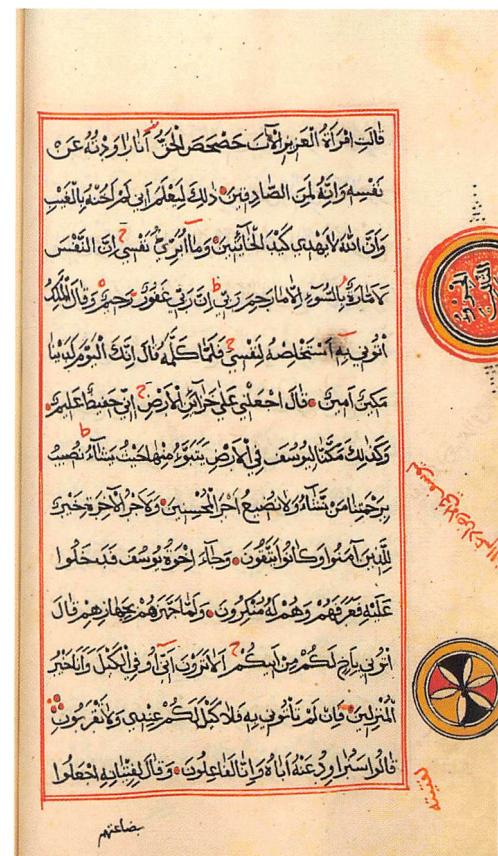 قَالَتِ امْرَأَةُ الْعَزِيزِ الْآنَ حَصْحَصَ الْحَقُّ أَنَا رَاوَدْتُهُ عَنْ
نَفْسِهِ وَإِنَّهُ لَمِنَ الصَّادِقِينَ ذَلِكَ لِيَعْلَمَ أَنِّي لَمْ أَخُنْهُ بِالْغَيْبِ
وَأَنَّ اللهَ لَا يَهْدِي كَيْدَ الْخَائِنِينَ وَمَا أُبَرِّئُ نَفْسِي إِنَّ النَّفْسَ
لَأَمَّارَةٌ بِالسُّوءِ إِلَّا مَا رَحِمَ رَبِّي إِنَّ رَبِّي غَفُورٌ رَحِيمٌ وَقَالَ الْمَلِكُ
ائْتُونِي بِهِ أَسْتَخْلِصْهُ لِنَفْسِي فَلَمَّا كَلَّمَهُ قَالَ إِنَّكَ الْيَوْمَ لَدَيْنَا
مَكِينٌ أَمِينٌ قَالَ اجْعَلْنِي عَلَى خَزَائِنِ الْأَرْضِ إِنِّي حَفِيظٌ عَلِيمٌ
وَكَذَلِكَ مَكَّنَّا لِيُوسُفَ فِي الْأَرْضِ يَتَبَوَّءُ مِنْهَا حَيْثُ يَشَاءُ نُصِيبُ
بِرَحْمَتِنَا مَنْ نَشَاءُ وَلَا نُضِيعُ أَجْرَ الْمُحْسِنِينَ وَلَأَجْرُ الْآخِرَةِ خَيْرٌ
لِلَّذِينَ آمَنُوا وَكَانُوا يَتَّقُونَ وَجَاءَ إِخْوَةُ يُوسُفَ فَدَخَلُوا
عَلَيْهِ فَعَرَفَهُمْ وَهُمْ لَهُ مُنْكِرُونَ وَلَمَّا جَهَّزَهُمْ بِجَهَازِهِمْ قَالَ
ائْتُونِي بِأَخٍ لَكُمْ مِنْ أَبِيكُمْ أَلَا تَرَوْنَ أَنِّي أُوفِي الْكَيْلَ وَأَنَا خَيْرُ
الْمُنْزِلِينَ فَإِنْ لَمْ تَأْتُونِي بِهِ فَلَا كَيْلَ لَكُمْ عِنْدِي وَلَا تَقْرَبُونِ
قَالُوا سَنُرَاوِدُ عَنْهُ أَبَاهُ وَإِنَّا لَفَاعِلُونَ وَقَالَ لِفِتْيَانِهِ اجْعَلُوا
لفتيته
بضاعتهم